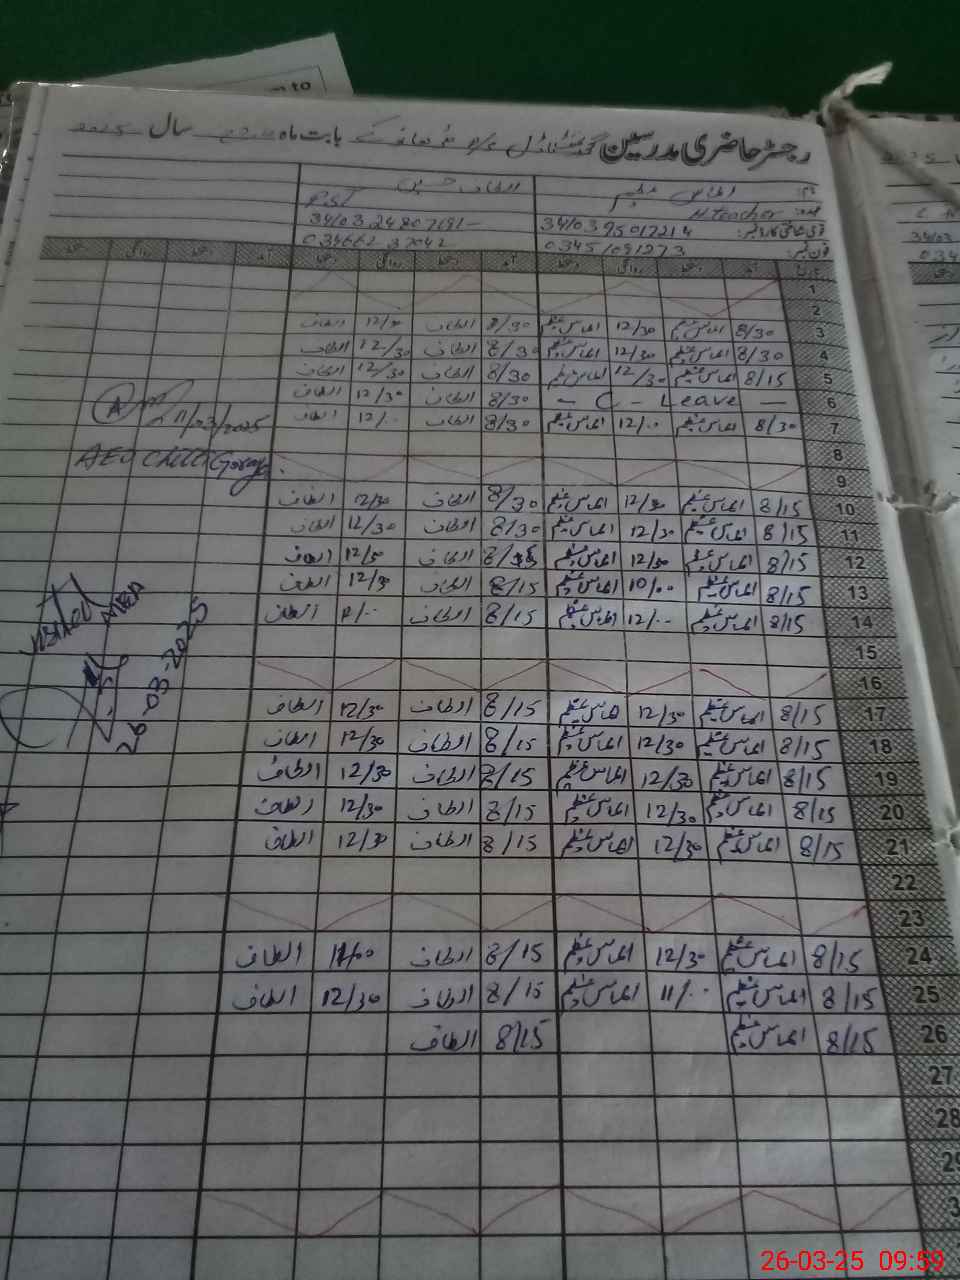 رجسٹر حاضری مدرسین بابت ماہ سال 2025
الطاف حسین الماس عظیم
PST H.teacher عہدہ
قومی شناختی کارڈ نمبر: 3410395017214
فون نمبر: 03451091273 03466237042
آمد دستخط روانگی دستخط آمد دستخط روانگی دستخط آمد دستخط روانگی دستخط
1
2
3 8/30 الماس عظیم 12/30 الماس عظیم 8/30 الطاف 12/30 الطاف
4 8/30 الماس عظیم 12/30 الماس عظیم 8/30 الطاف 12/30 الطاف
5 8/15 الماس عظیم 12/30 الماس عظیم 8/30 الطاف 12/30 الطاف
6 – C – Leave – 8/30 الطاف 12/30 الطاف
7 8/30 الماس عظیم 12/.. الماس عظیم 8/30 الطاف 12/.. الطاف
8
9
10 8/15 الماس عظیم 12/30 الماس عظیم 8/30 الطاف 12/30 الطاف
11 8/15 الماس عظیم 12/30 الماس عظیم 8/30 الطاف 12/30 الطاف
12 8/15 الماس عظیم 12/30 الماس عظیم الطاف الطاف
13 8/15 الماس عظیم 10/.. الماس عظیم 8/15 الطاف 12/30 الطاف
14 8/15 الماس عظیم 12/.. الماس عظیم 8/15 الطاف الطاف
15
16
17 8/15 الماس عظیم 12/30 الماس عظیم 8/15 الطاف 12/30 الطاف
18 8/15 الماس عظیم 12/30 الماس عظیم 8/15 الطاف 12/30 الطاف
19 8/15 الماس عظیم 12/30 الماس عظیم 8/15 الطاف 12/30 الطاف
20 8/15 الماس عظیم 12/30 الماس عظیم 8/15 الطاف 12/30 الطاف
21 8/15 الماس عظیم 12/30 الماس عظیم 8/15 الطاف 12/30 الطاف
22
23
24 8/15 الماس عظیم 12/30 الماس عظیم 8/15 الطاف الطاف
25 8/15 الماس عظیم 11/.. الماس عظیم 8/15 الطاف 12/30 الطاف
26 8/15 الماس عظیم 8/15 الطاف
27
28
29
11/03/2025
AEO
Visited
MEA
26-03-2025
26-03-25 09:59